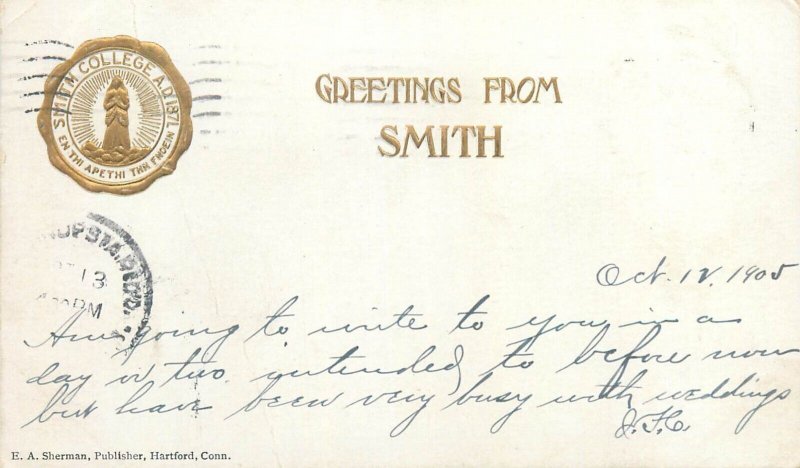 SMITH COLLEGE A.D. 1871
GREETINGS FROM
SMITH
13
PM
Oct. 12, 1905
Am going to write to you in a
day or two. intended to before now
but have been very busy with weddings
E. A. Sherman, Publisher, Hartford, Conn.